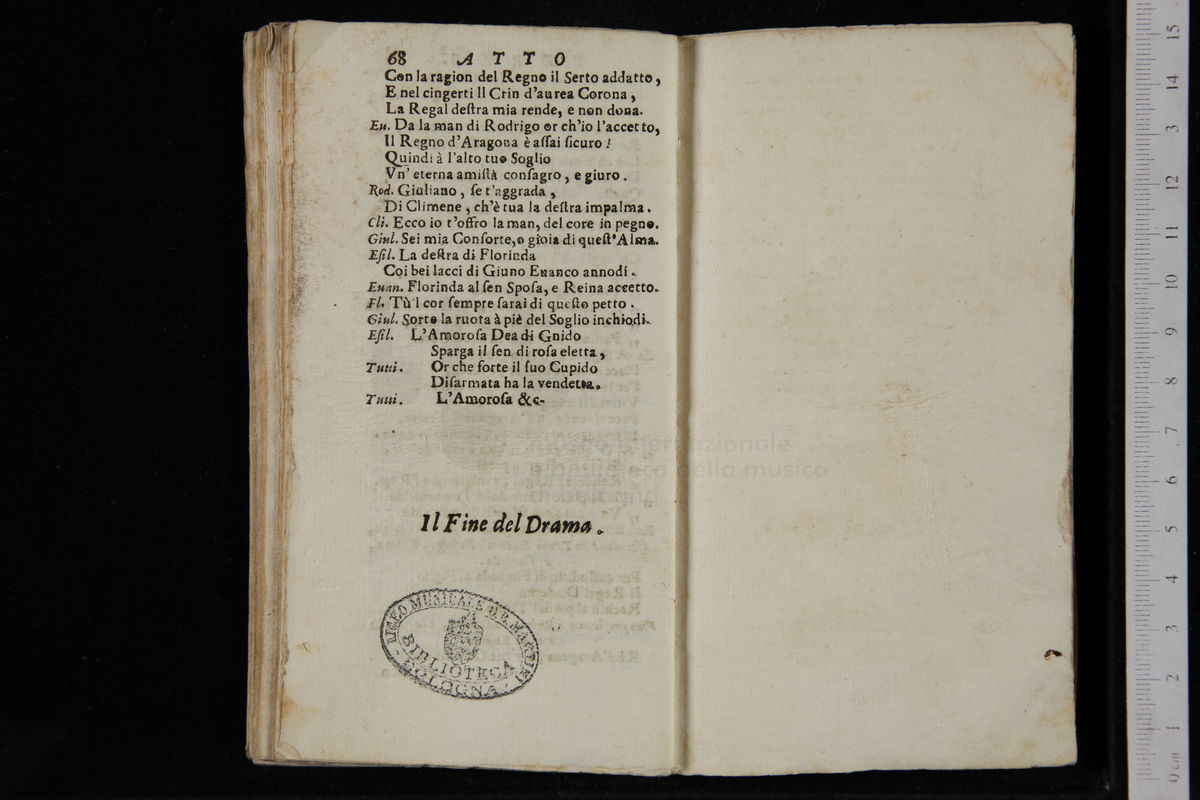 68 ATTO
Con la ragion del Regno il Serto addatto,
E nel cingerti Il Crin d'aurea Corona,
La Regal deſtra mia rende, e non dona.
Eu. Da la man di Rodrigo or ch'io l'accetto,
Il Regno d'Aragona è aſſai ſicuro!
Quindi à l'alto tuo Soglio
Vn' eterna amiſtà conſagro, e giuro.
Rod. Giuliano, ſe t'aggrada,
Di Climene, ch'è tua la deſtra impalma.
Cli. Ecco io t'offro la man, del core in pegno.
Giul. Sei mia Conſorte, o gioia di queſt'Alma.
Eſil. La deſtra di Florinda
Coi bei lacci di Giuno Euanco annodi.
Euan. Florinda al ſen Spoſa, e Reina accetto.
Fl. Tù'l cor ſempre ſarai di queſto petto.
Giul. Sorte la ruota à piè del Soglio inchiodi.
Eſil. L'Amoroſa Dea di Gnido
Sparga il ſen di roſa eletta,
Tutti. Or che forte il ſuo Cupido
Diſarmata ha la vendetta.
Tutti. L'Amoroſa &c.
museo internazionale
e biblioteca della musica
Il Fine del Drama.
LICEO MUSICALE G.B. MARTINI
BIBLIOTECA
BOLOGNA
0 cm 1 2 3 4 5 6 7 8 9 10 11 12 13 14 15